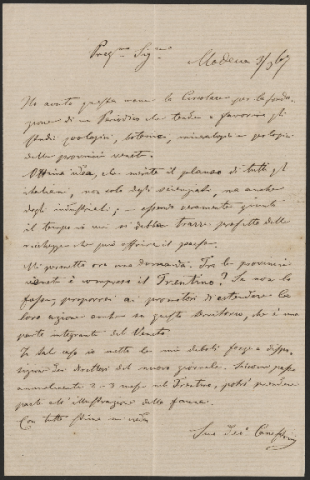 Preg.mo Sig.re
Modena 3/3 67
Ho avuto questa mane la Circolare per la fonda-
zione di un Periodico che tende a favorire gli
studi zoologici, botanici, mineralogici e geologici
delle provincie venete.
Ottima idea, che merita il plauso di tutti gl'
italiani, non solo degli scienziati, ma anche
degli industriali; essendo veramente giunto
il tempo in cui si debba trarre profitto delle
ricchezze che può offrire il paese.
Mi permetta ora una domanda. Tra le provincie
venete è compreso il Trentino? Se non lo
fosse, proporrei ai promotori di estendere la
loro azione anche su questo territorio, che è una
parte integrante del Veneto.
In tal caso io metto le mie deboli forze a dispo-
sizione dei direttori del nuovo giornale. Siccome passo
annualmente 2-3 mesi nel Trentino, potrò prendere
parte all'illustrazione della fauna.
Con tutta stima mi creda
Suo Dev. Canestrini